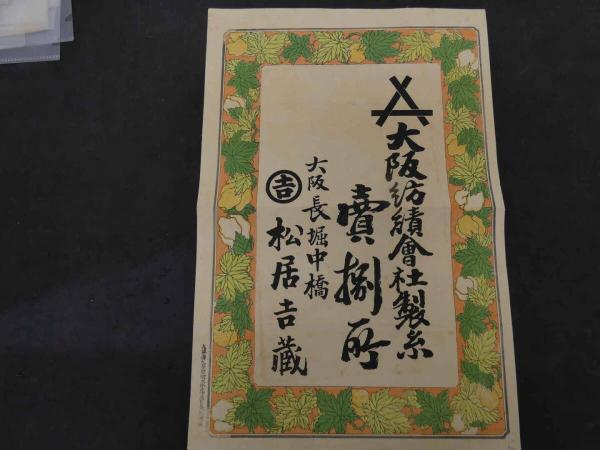 大阪紡績會社製糸
賣捌所
大阪長堀中橋
吉 松居吉蔵